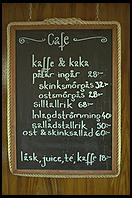 Cafe
kaffe & kaka
påtår ingår 28:-
skinksmörgås 32:-
ostsmörgås 28:-
silltallrik 68:-
Inlagdströmming 40
salladstallrik 50:-
ost & skinksallad 60:-
läsk, juice, té, kaffe 18:-